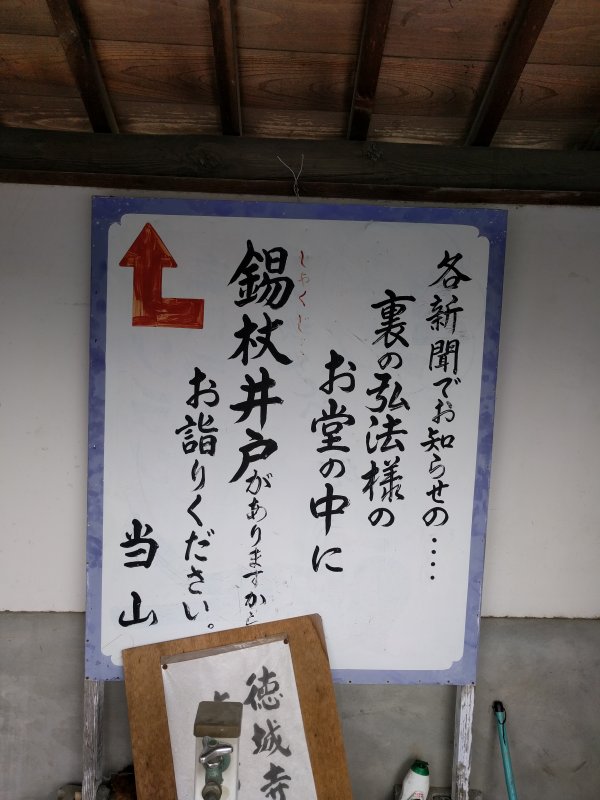 各新聞でお知らせの‥‥
裏の弘法様の
お堂の中に
しゃくじょ
錫杖井戸がありますから
お詣りください。
当山
徳城寺